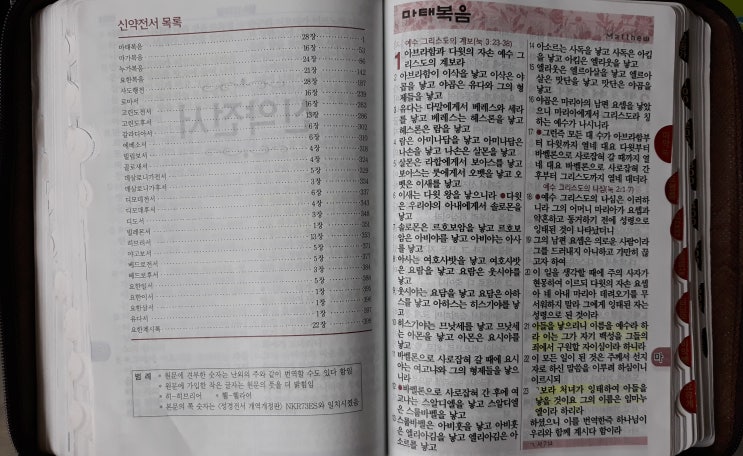 신약전서 목록
마태복음 28장 53
마가복음 16장
누가복음 24장 86
요한복음 21장 142
사도행전 28장 187
로마서 16장
고린도전서 16장
고린도후서 13장 286
갈라디아서 6장
에베소서 6장
빌립보서 4장 318
골로새서 4장 324
데살로니가전서 5장 329
데살로니가후서 3장 334
디모데전서 6장 337
디모데후서 4장 343
디도서 3장 348
빌레몬서 1장 351
히브리서 13장
야고보서 5장
베드로전서 5장 377
베드로후서 3장 384
요한일서 5장 389
요한이서 1장 395
요한삼서 1장 396
유다서 1장
요한계시록 22장
범 례
• 원문에 견부한 숫자는 난외의 주와 같이 번역할 수도 있다 함임
• 원문에 가입한 작은 글자는 원문의 뜻을 더 밝힘임
• 히-히브리어 • 헬-헬라어
• 본문의 쪽 숫자는 <성경전서 개역개정판> NKR73ES와 일치시켰음
마태복음
Matthew
예수 그리스도의 계보(눅 3:23-38)
1 아브라함과 다윗의 자손 예수 그리스도의 계보라
2 아브라함이 이삭을 낳고 이삭은 야
곱을 낳고 야곱은 유다와 그의 형
제들을 낳고
3 유다는 다말에게서 베레스와 세라
를 낳고 베레스는 헤스론을 낳고
헤스론은 람을 낳고
4 람은 아미나답을 낳고 아미나답은
나손을 낳고 나손은 살몬을 낳고
5 살몬은 라합에게서 보아스를 낳고
보아스는 룻에게서 오벳을 낳고 오
벳은 이새를 낳고
6 이새는 다윗 왕을 낳으니라 ●다윗
은 우리야의 아내에게서 솔로몬을
낳고
7 솔로몬은 르호보암을 낳고 르호보
암은 아비야를 낳고 아비야는 아사
를 낳고
8 아사는 여호사밧을 낳고 여호사밧
은 요람을 낳고 요람은 웃시야를
낳고
9 웃시야는 요담을 낳고 요담은 아하
스를 낳고 아하스는 히스기야를 낳
고
10 히스기야는 므낫세를 낳고 므낫세
는 아몬을 낳고 아몬은 요시야를
낳고
11 바벨론으로 사로잡혀 갈 때에 요시
야는 여고냐와 그의 형제들을 낳으
니라
12 ●바벨론으로 사로잡혀 간 후에 여고
냐는 스알디엘을 낳고 스알디엘
은 스룹바벨을 낳고
13 스룹바벨은 아비훗을 낳고 아비훗
은 엘리아김을 낳고 엘리아김은 아
소르를 낳고
14 아소르는 사독을 낳고 사독은 아킴
을 낳고 아킴은 엘리웃을 낳고
15 엘리웃은 엘르아살을 낳고 엘르아
살은 맛단을 낳고 맛단은 야곱을
낳고
16 야곱은 마리아의 남편 요셉을 낳았
으니 마리아에게서 그리스도라 칭
하는 예수가 나시니라
17 ●그런즉 모든 대 수가 아브라함부
터 다윗까지 열네 대요 다윗부터
바벨론으로 사로잡혀 갈 때까지 열
네 대요 바벨론으로 사로잡혀 간
후부터 그리스도까지 열네 대더라
예수 그리스도의 나심(눅 2:1-7)
18 ●예수 그리스도의 나심은 이러하
니라 그의 어머니 마리아가 요셉과
약혼하고 동거하기 전에 성령으로
잉태된 것이 나타났더니
19 그의 남편 요셉은 의로운 사람이라
그를 드러내지 아니하고 가만히 끊
고자 하여
20 이 일을 생각할 때에 주의 사자가
현몽하여 이르되 다윗의 자손 요셉
아 네 아내 마리아 데려오기를 무
서워하지 말라 그에게 잉태된 자는
성령으로 된 것이라
21 아들을 낳으리니 이름을 예수라 하
라 이는 그가 자기 백성을 그들의
죄에서 구원할 자이심이라 하니라
22 이 모든 일이 된 것은 주께서 선지
자로 하신 말씀을 이루려 하심이니
이르시되
23 보라 처녀가 잉태하여 아들을
낳을 것이요 그의 이름은 임마누
엘이라 하리라
하셨으니 이를 번역한즉 하나님이
우리와 함께 계시다 함이라
마